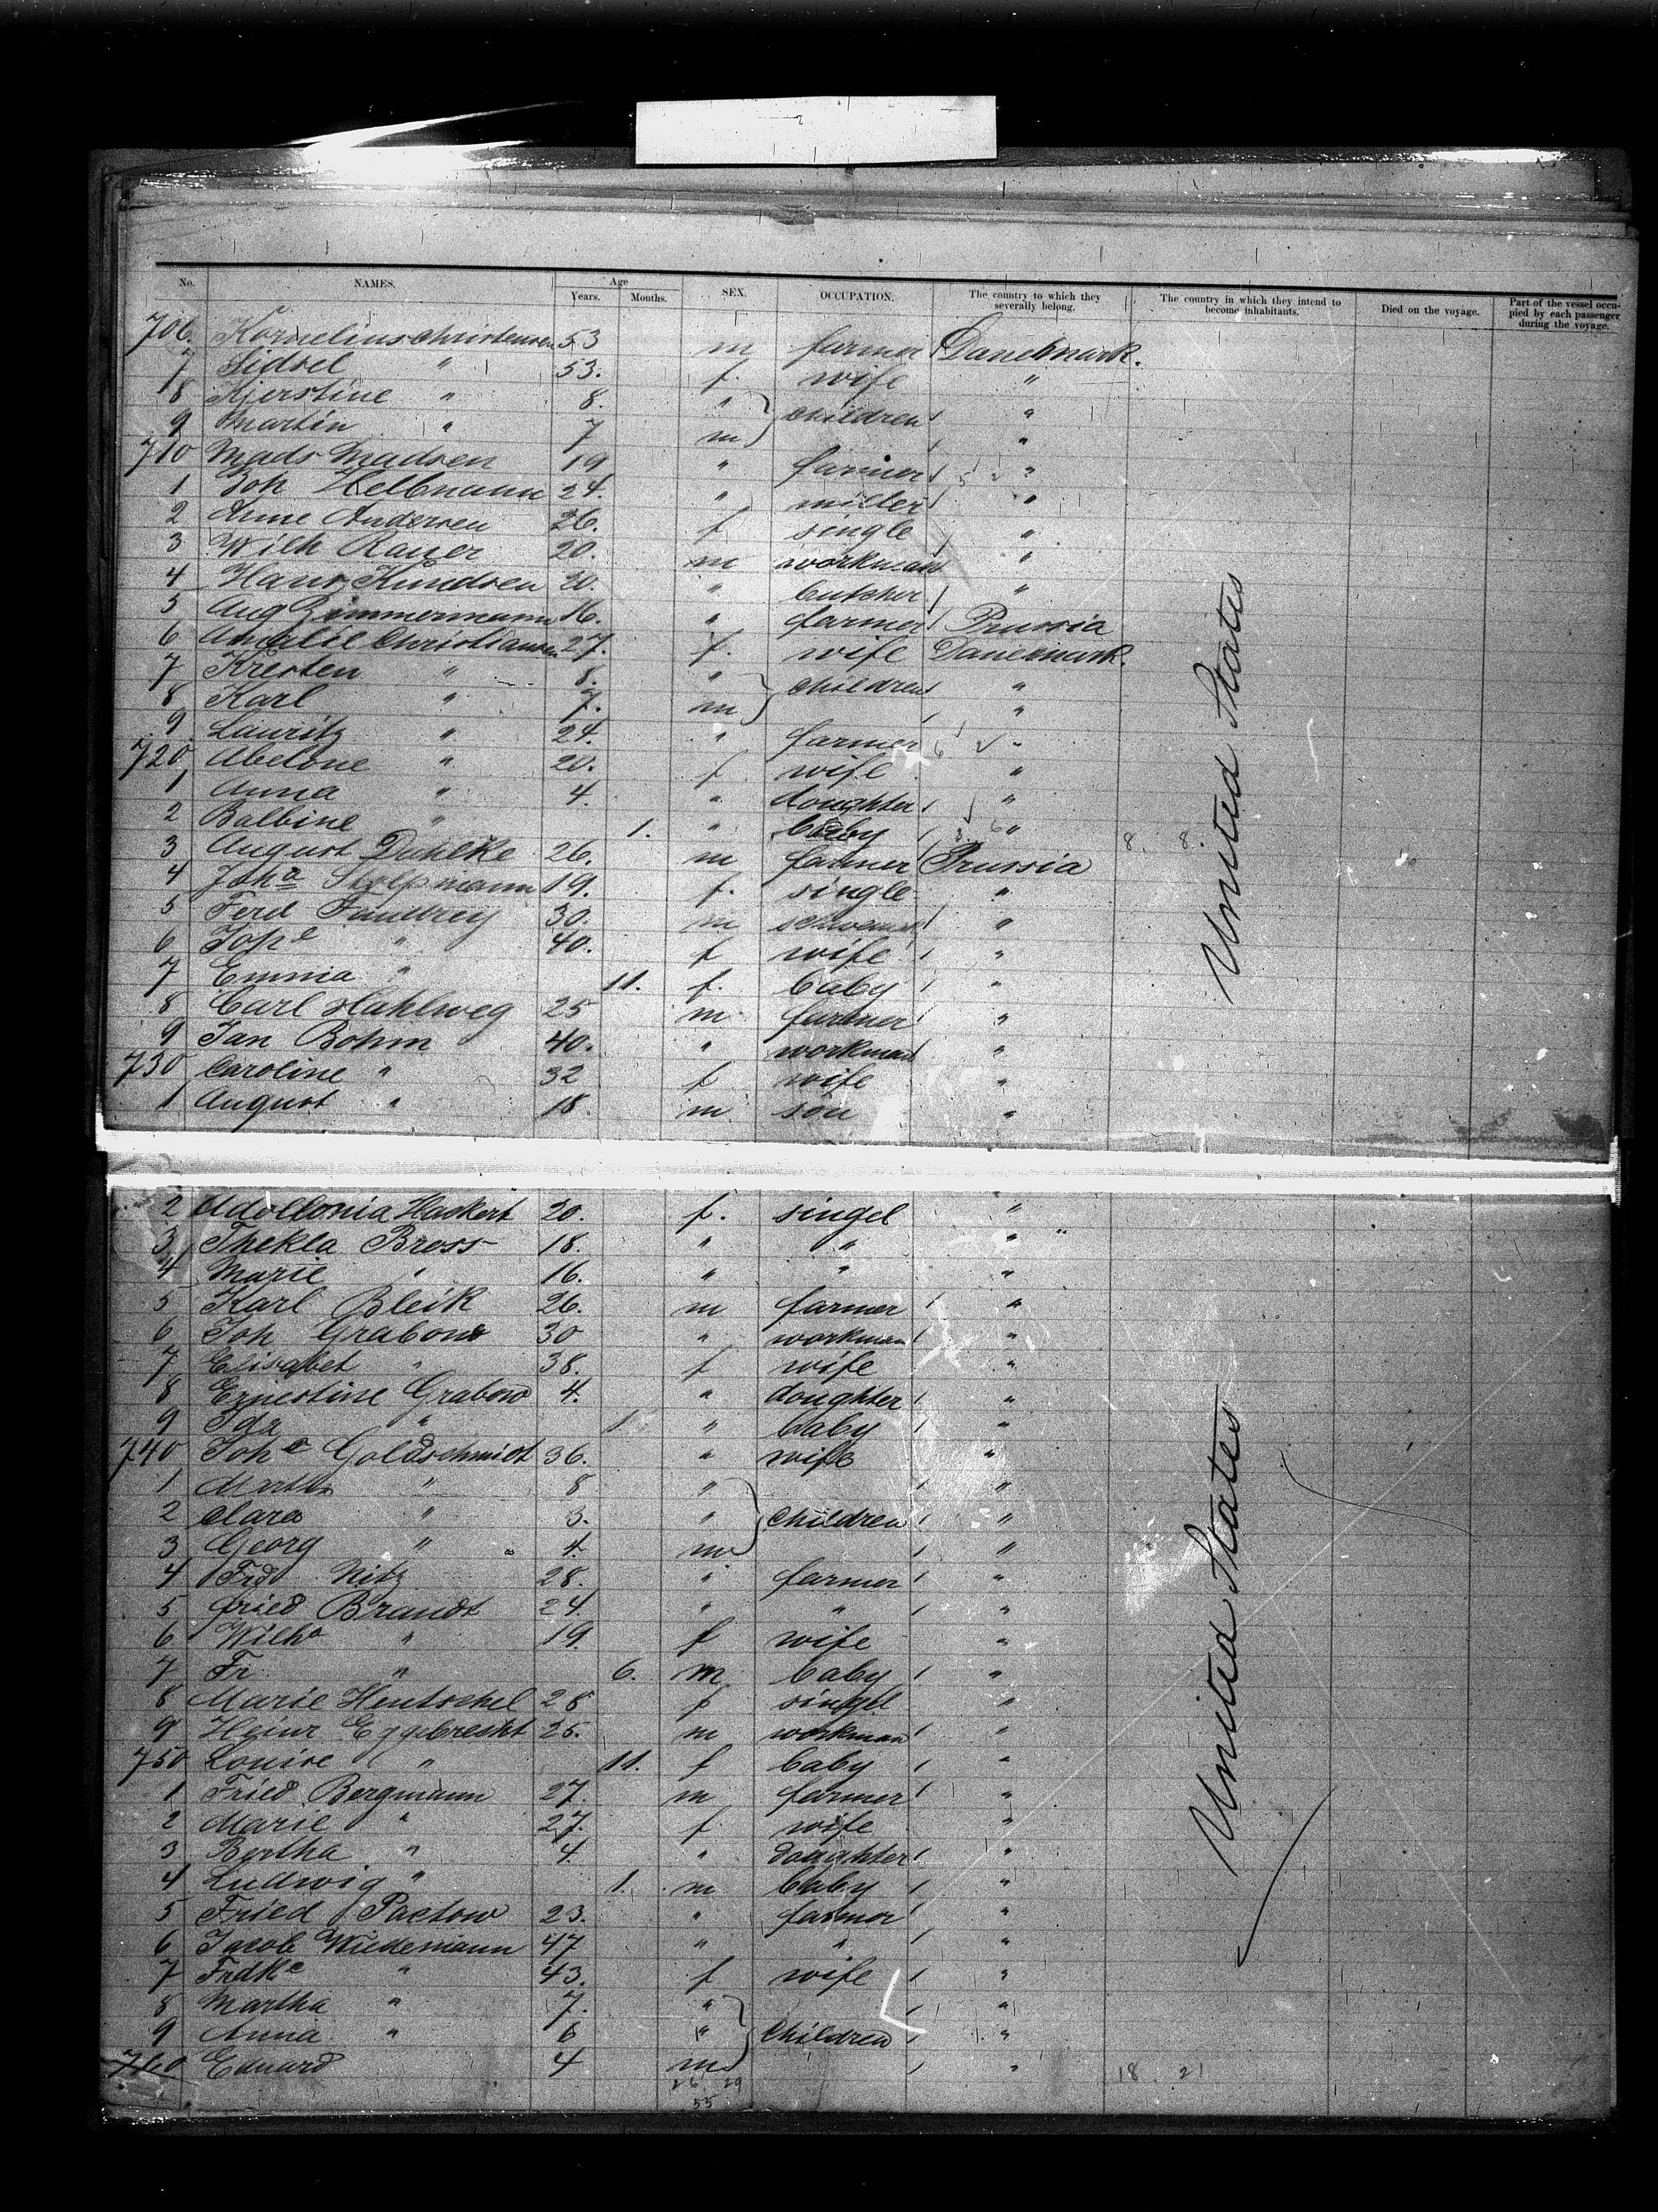 No. NAMES. Age Years. Months. SEX. OCCUPATION. The country to which they severally belong. The country in which they intend to become inhabitants. Died on the voyage. Part of the vessel occupied by each passenger during the voyage.
706. Kornelius Christensen 53 m farmer Danemark.
7 Sidsel " 53. f. wife "
8 Kjerstine " 8. " } children "
9 Martin " 7 m "
710 Mads Madsen 19 " farmer "
1 Joh Hellmann 24. " miller "
2 Anne Andersen 26. f single "
3 Wilh Rauer 20. m workman "
4 Hans Knudsen 20. " butcher "
5 Aug Zimmermann 16. " farmer Prussia
6 Amalie Christiansen 27. f. wife Danemark.
7 Kresten " 8. " } children "
8 Karl " 7. m "
9 Lauritz " 24. " farmer "
720 Abelone " 20. f wife "
1 Anna " 4. " doughter "
2 Balbine " 1. " baby "
3 August Dahlke 26. m farmer Prussia
4 Joha Stolpmann 19. f. single "
5 Ferd 30. m "
6 Johe " 40. f wife "
7 Emma " 11. f. baby "
8 Carl Hahlweg 25 m farmer "
9 Jan Bohm 40. " workman "
730 Caroline " 32 f wife "
1 August " 18. m son "
2 Hackert 20. f. singel "
3 Thekla Bross 18. " " "
4 Marie " 16. " " "
5 Karl Bleik 26. m farmer "
6 Joh Grabow 30 " workman "
7 Elisabet " 38. f wife "
8 Ernestine Grabow 4. " doughter "
9 Ida " 1 " baby "
740 Johe Goldschmidt 36. " wife "
1 Martha " 8 " "
2 Clara " 3. " } children "
3 Georg " 4 m "
4 Frd Nitz 28. " farmer "
5 Fried Brandt 24. " " "
6 Wilha " 19. f wife "
7 Fr " 6. m baby "
8 Marie Hentschel 28 f singel "
9 Heinr Eggebrecht 25. m workman "
750 Louise " 11. f baby "
1 Fried Bergmann 27. m farmer "
2 Marie " 27. f wife "
3 Bertha " 4. " daughter "
4 Ludwig " 1. m baby "
5 Fried Paetow 23. " farmer "
6 Jacob Wiedemann 47 " " "
7 Frdke " 43. f wife "
8 Martha " 7. " "
9 Anna " 6 " } children "
760 Eduard 4 m "
United States
United States
8. 8.
18. 21
26 29
55